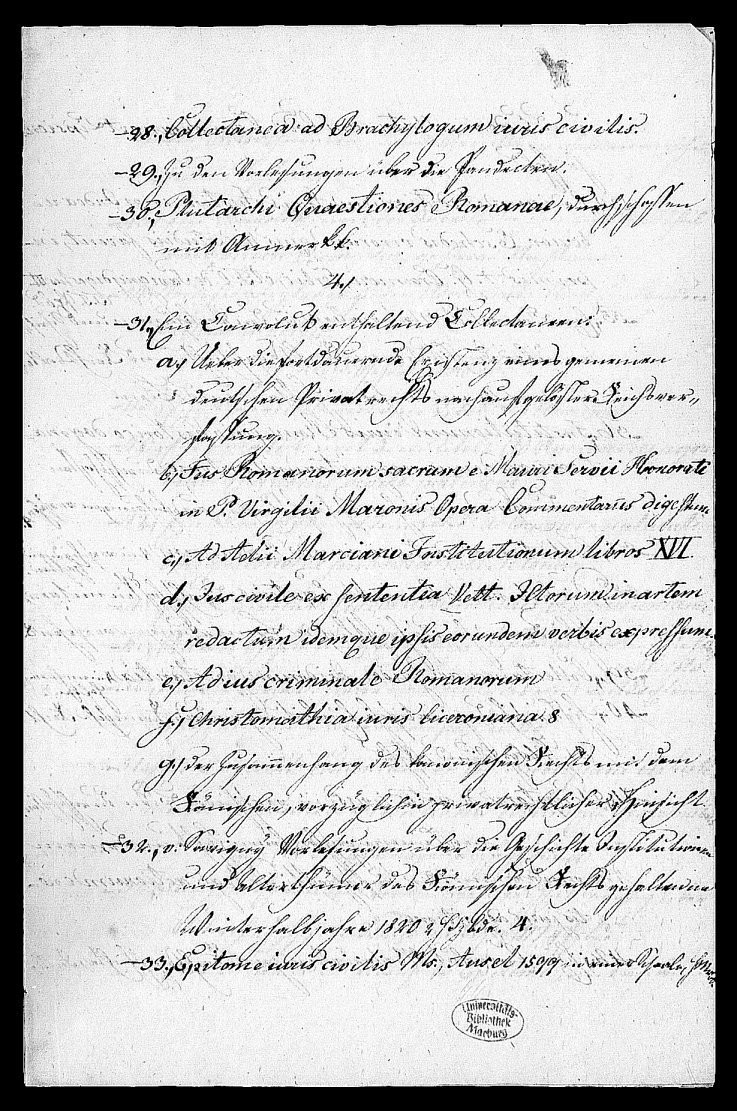 -28., Collectanea ad Brachylogum iuris civilis.
-29., Zu den Vorlesungen über die Pandecten.
-30., Plutarchi Quaestiones Romanae, durchschossen
mit Anmerkk.
4./
-31., Ein Convolut enthaltend Collectaneen:
a.) Ueber die fortdauernde Existenz eines gemeinen
deutschen Privatrechts nach aufgelöster Reichsver-
fassung.
b.) Jus Romanorum sacrum e Mauri Servii Honorati
in P. Virgilii Maronis Opera Commentariis digestum
c.) Ad Aelii Marciani Institutionum libros XVI.
d.) Jus civile ex sententia Vett. Ictorum in artem
redactum idemque ipsis eorundem verbis expressum.
e.) Ad ius criminale Romanorum
f.) Christomathia iuris Ciceroniana 8
g.) der Zusammenhang des kanonischen Rechts mit dem
Römischen, vorzüglich in privatrechtlicher Hinsicht.
-32., v. Savigny Vorlesungen über die Geschichte Institutionen
und Alterthümer des Römischen Rechts gehalten im
Winterhalbjahre 1820 4.
-33., Epitome iuris civilis Ms. 1599 in einer
Universitäts-
Bibliothek
Marburg